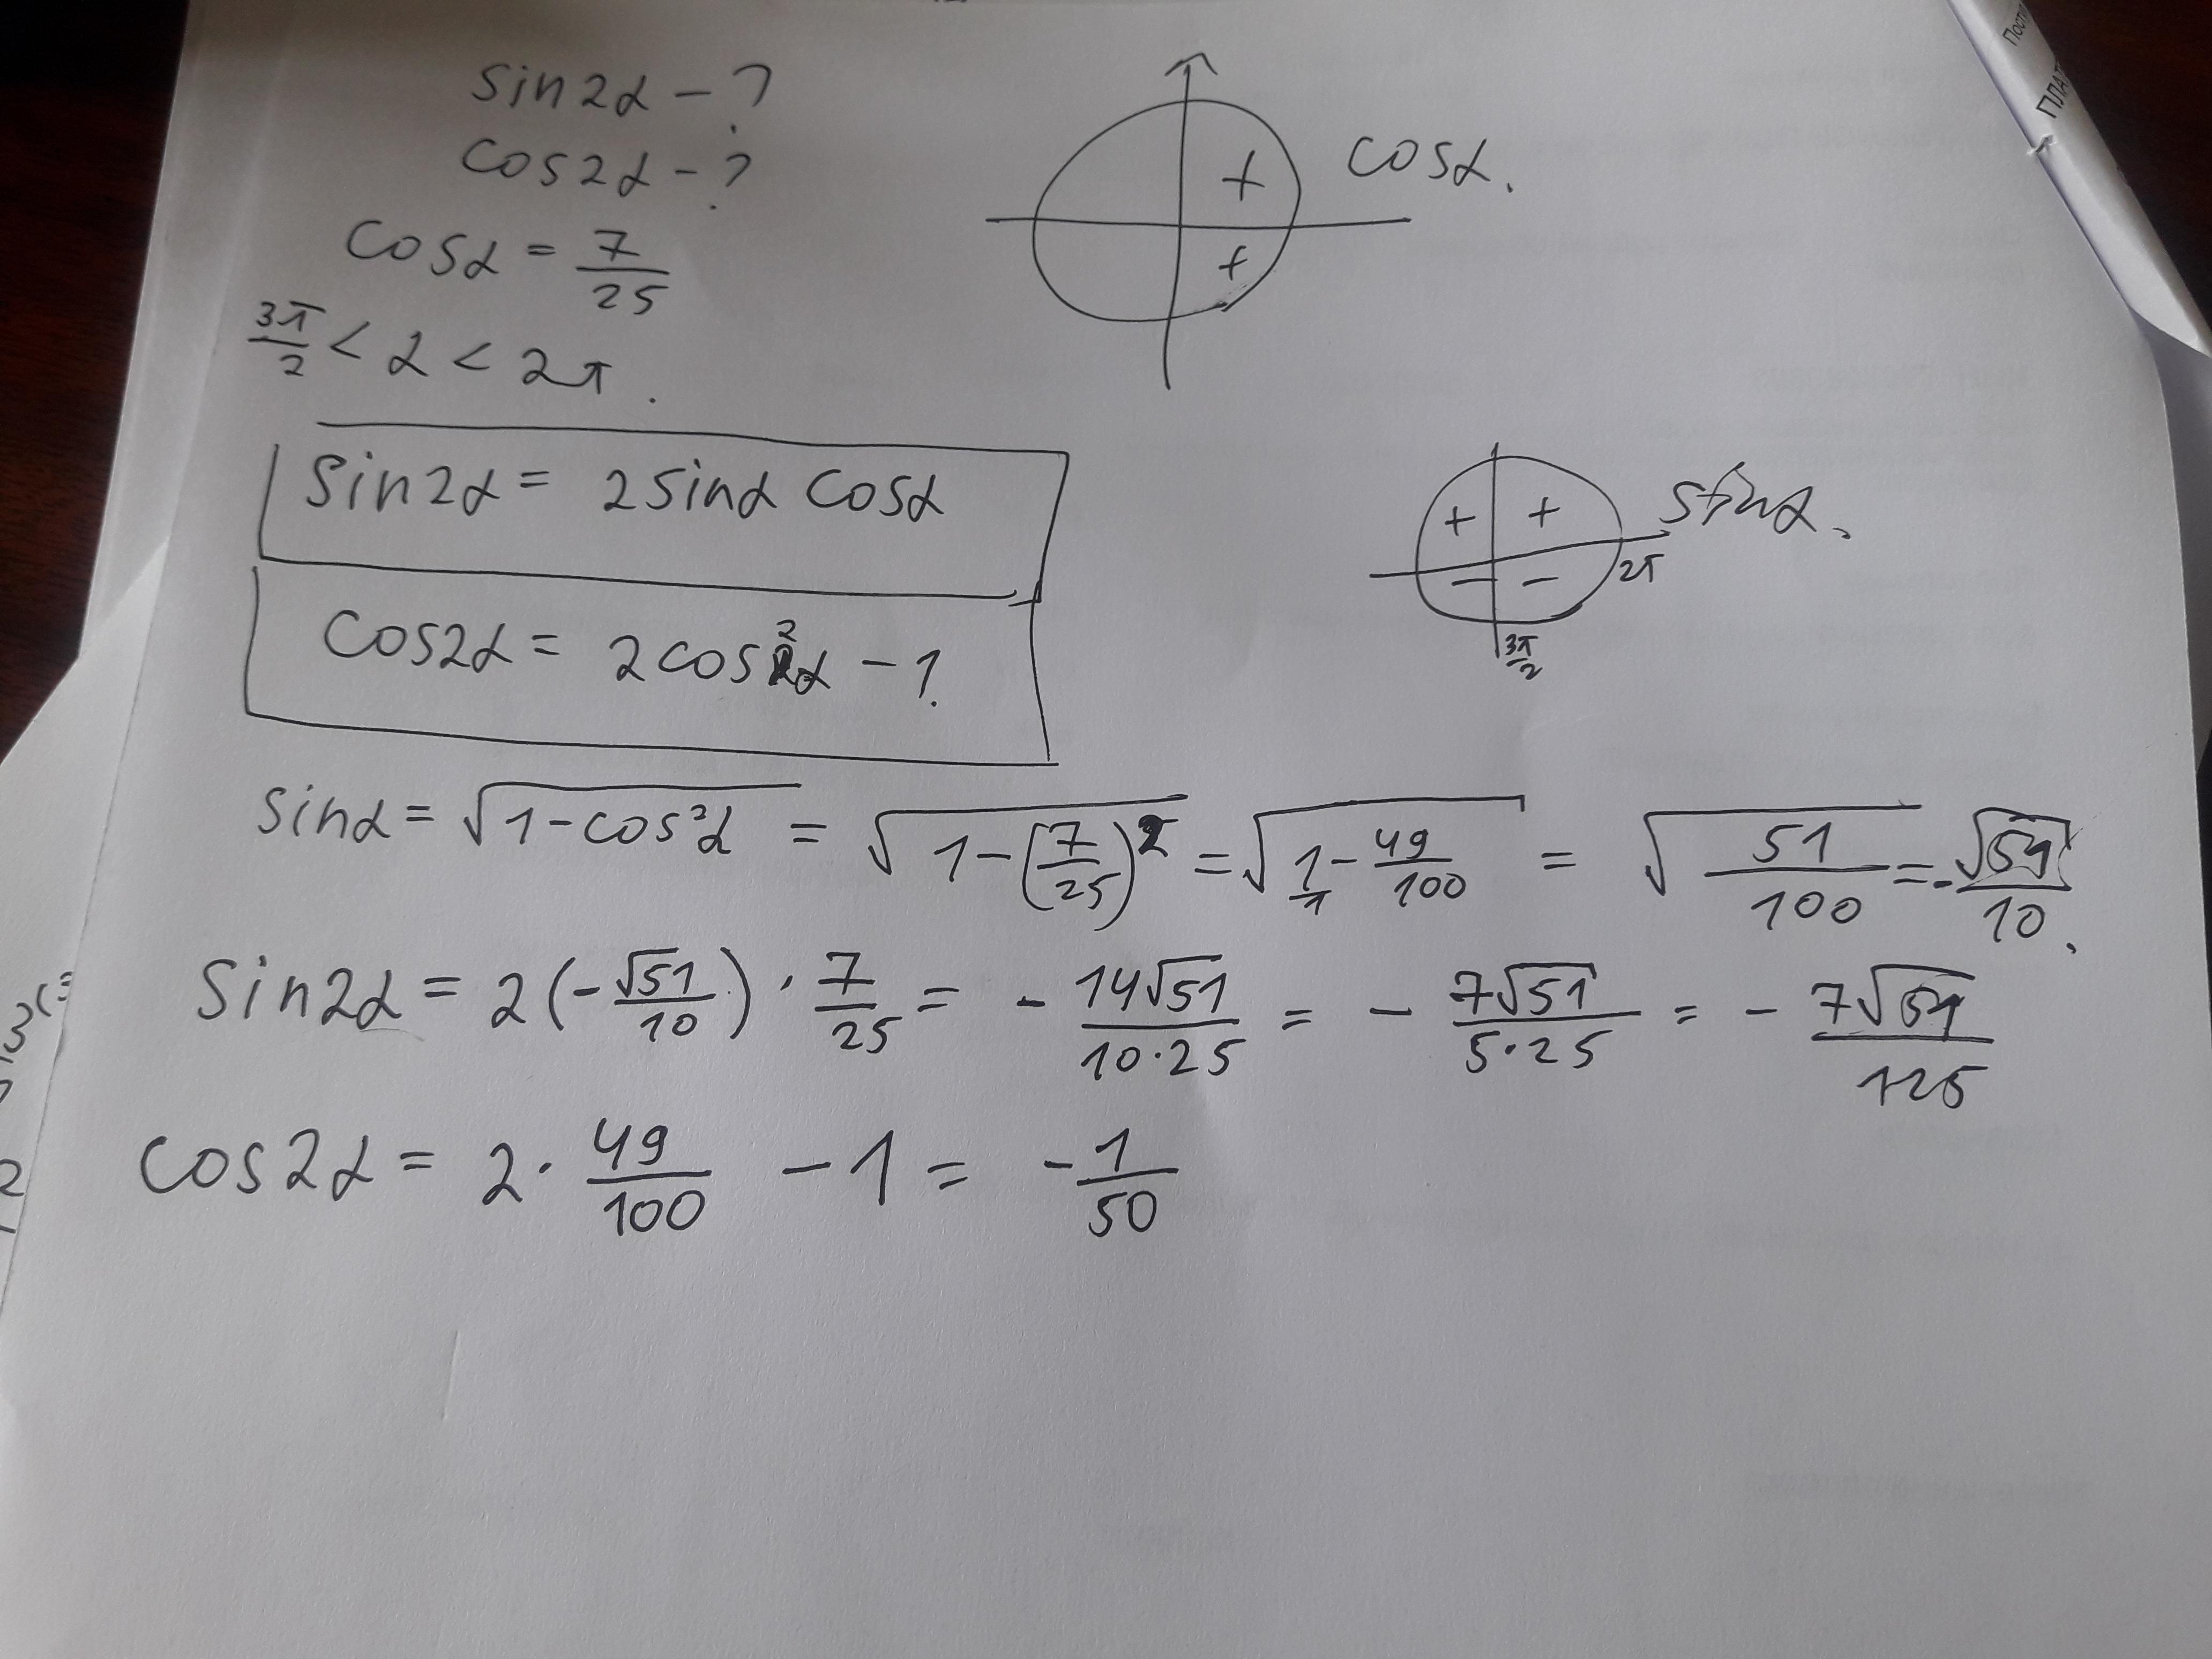 sin2α - ?
cos2α - ?
cosα = 7/25
3π/2 < α < 2π.
cosα.
sin2α = 2sinα cosα
cos2α = 2cos²α - 1.
sinα.
2π
3π/2
sinα = √(1-cos²α) = √(1-(7/25)²) = √(1/1 - 49/100) = √(51/100) = -√51/10.
sin2α = 2(-√51/10) · 7/25 = - 14√51/(10·25) = - 7√51/(5·25) = - 7√51/125
cos2α = 2 · 49/100 - 1 = - 1/50